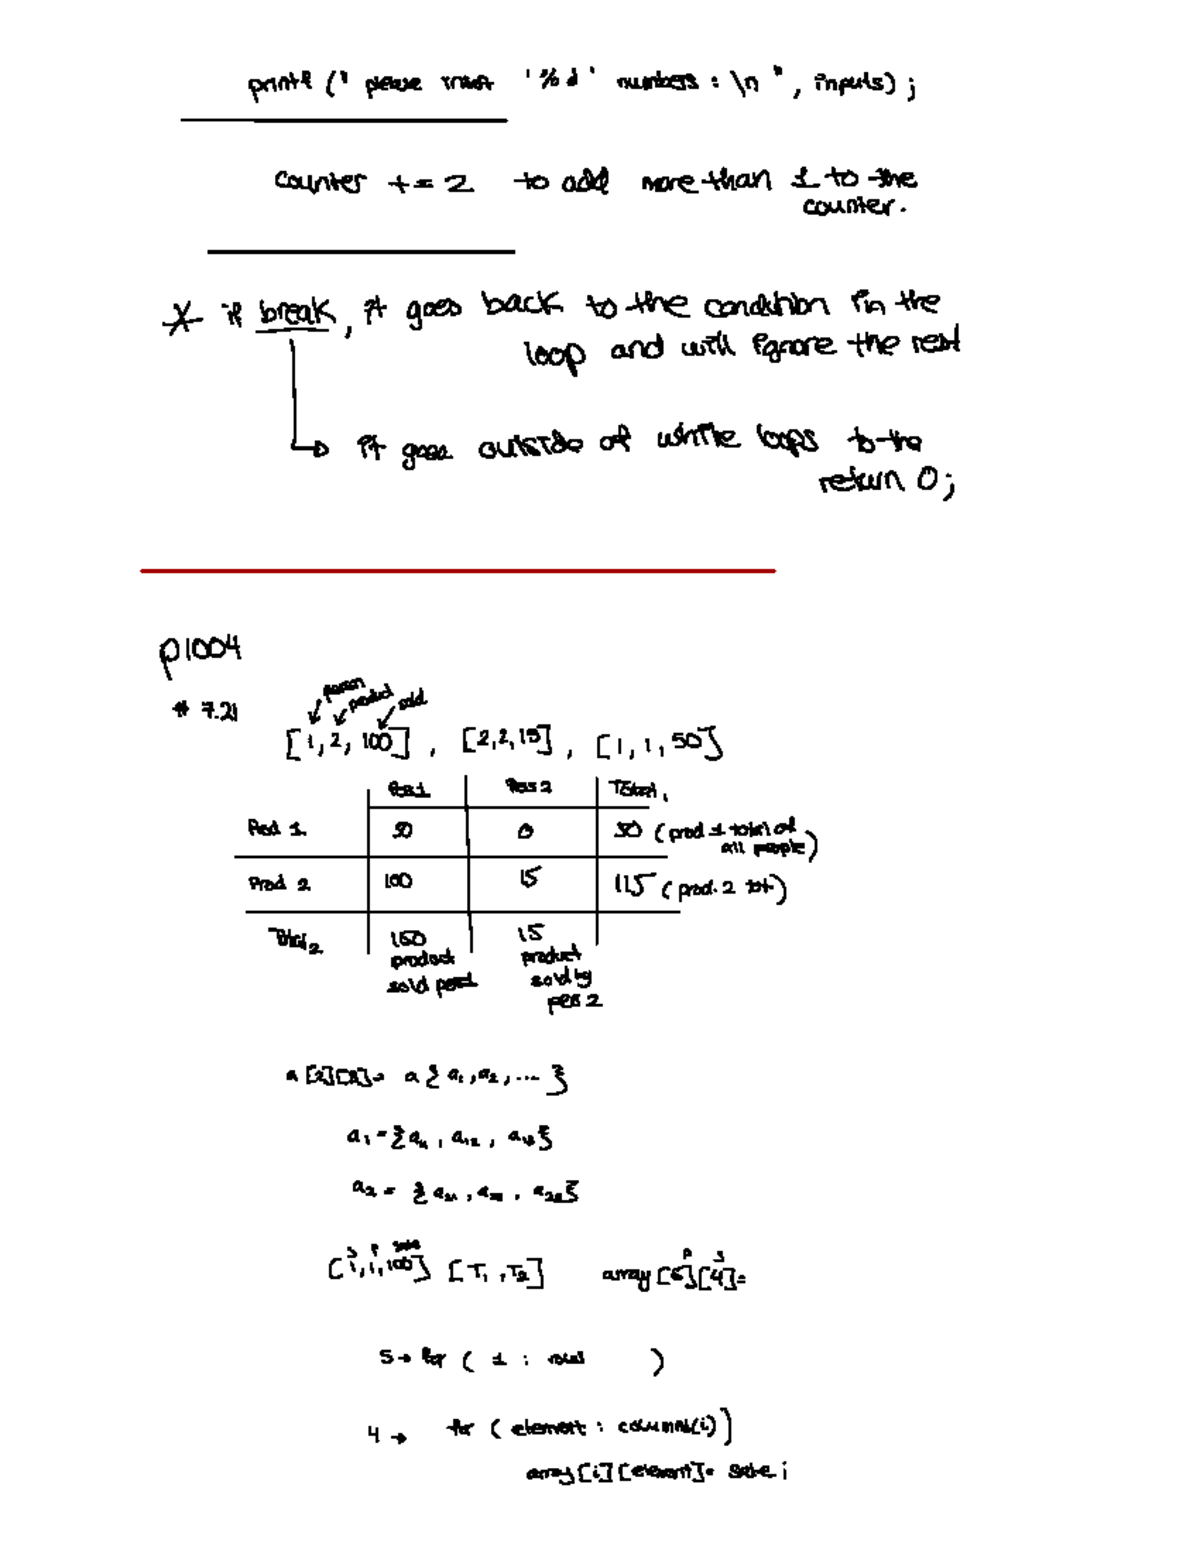 printf (" please insert '%d' numbers : \n ", inputs) ;
counter += 2 to add more than 1 to the
counter.
* if break, it goes back to the condition in the
loop and will ignore the rest
it goes outside of while loops to the
return 0;
p1004
# 7.21
person
product
sold
[1, 2, 100] , [2,2,15] , [1, 1, 50]
Pers 1 Pers 2 Total 1
Prod 1. 50 0 50 (prod 1 total of
all people)
Prod 2 100 15 115 (prod. 2 tot)
Total 2 150 15
product product
sold pers1 sold by
pers 2
a [2][3]= a { a1 , a2 , ... }
a1 = { a11 , a12 , a13 }
a2 = { a21 , a22 , a23 }
S P sale
[1, 1, 100] [T1 , T2]
P S
array [5][4]=
5 → for ( 1 : rows )
4 → for ( element : columns(i) )
array[i][element]= sale i